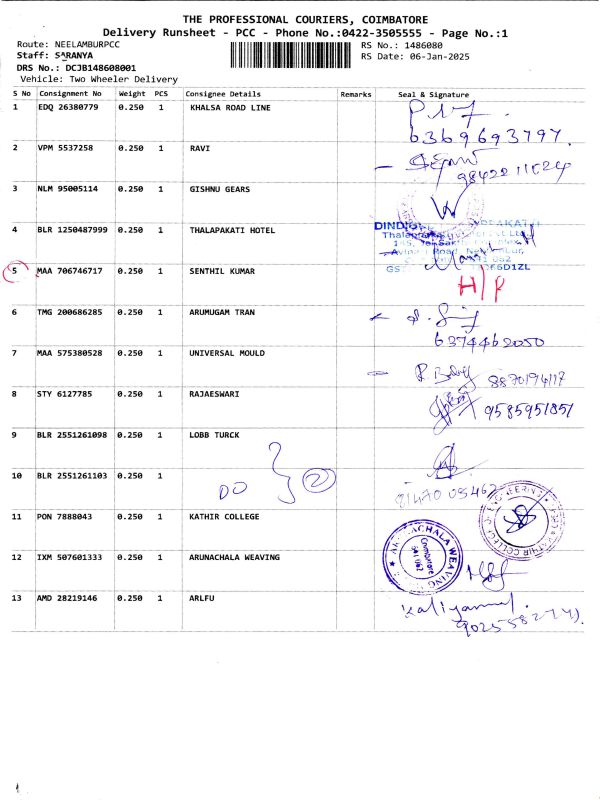 THE PROFESSIONAL COURIERS, COIMBATORE
Delivery Runsheet - PCC - Phone No.:0422-3505555 - Page No.:1
Route: NEELAMBURPCC
RS No.: 1486080
Staff: SARANYA
RS Date: 06-Jan-2025
DRS No.: DCJB148608001
Vehicle: Two Wheeler Delivery
S No Consignment No Weight PCS Consignee Details Remarks Seal & Signature
1 EDQ 26380779 0.250 1 KHALSA ROAD LINE
6369693797.
2 VPM 5537258 0.250 1 RAVI
3 NLM 95005114 0.250 1 GISHNU GEARS
4 BLR 1250487999 0.250 1 THALAPAKATI HOTEL
5 MAA 706746717 0.250 1 SENTHIL KUMAR
H/P
6 TMG 200686285 0.250 1 ARUMUGAM TRAN
6374462050
7 MAA 575380528 0.250 1 UNIVERSAL MOULD
8 STY 6127785 0.250 1 RAJAESWARI
9585951851
9 BLR 2551261098 0.250 1 LOBB TURCK
10 BLR 2551261103 0.250 1 DO } 2
11 PON 7888043 0.250 1 KATHIR COLLEGE
12 IXM 507601333 0.250 1 ARUNACHALA WEAVING
13 AMD 28219146 0.250 1 ARLFU